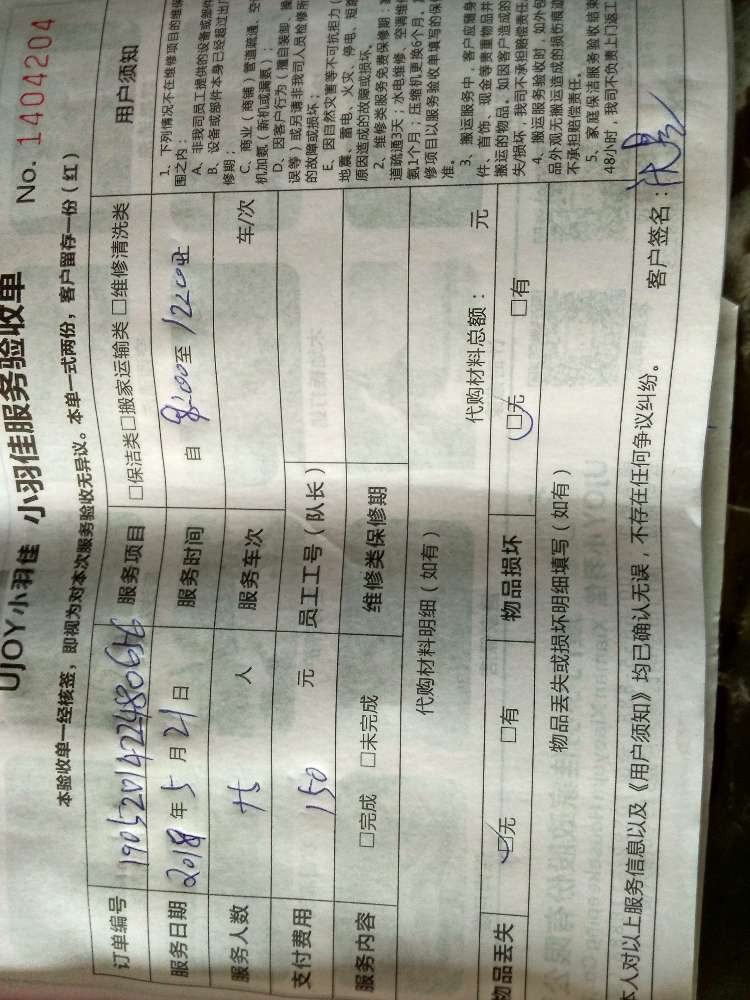 UJOY小羽佳 小羽佳服务验收单
No. 1404204
本验收单一经核签，即视为对本次服务验收无异议。本单一式两份，客户留存一份（红）
订单编号 服务项目 □保洁类□搬家运输类 □维修清洗类
服务日期 2018 年 5 月 21 日 服务时间 自 8:00 至 1200 止
服务人数 人 服务车次 车/次
支付费用 150 元 员工工号（队长）
服务内容 □完成 □未完成 维修类保修期
代购材料明细（如有） 代购材料总额： 元
物品丢失 □无 □有 物品损坏 □无 □有
物品丢失或损坏明细填写（如有）
本人对以上服务信息以及《用户须知》均已确认无误，不存在任何争议纠纷。 客户签名：
用户须知
1、下列情况不在维修项目的维保
围之内：
A、非我司员工提供的设备或部件
B、设备或部件本身已经超过出厂
修期；
C、商业（商铺）管道疏通、空
机加氨（新机或漏氨）；
D、因客户行为（擅自装卸、操
误等）或另请非我司人员检修所
的故障或损坏；
E、因自然灾害等不可抗拒力（
地震、蓄电、火灾、停电、短路
原因造成的故障或损坏。
2、维修类服务免费保修期：
道疏通3天；水电维修、空调维
氨1个月；压缩机更换6个月，
修项目以服务验收单填写的保
准。
3、搬运服务中，客户应随身
件、首饰、现金等贵重物品并
搬运的物品。如因客户造成的
失/损坏，我司不承担赔偿责任
4、搬运服务验收时，如外包
品外观无搬运造成的损伤痕迹
不承担赔偿责任。
5、家庭保洁服务验收结束
48小时，我司不负责上门返工